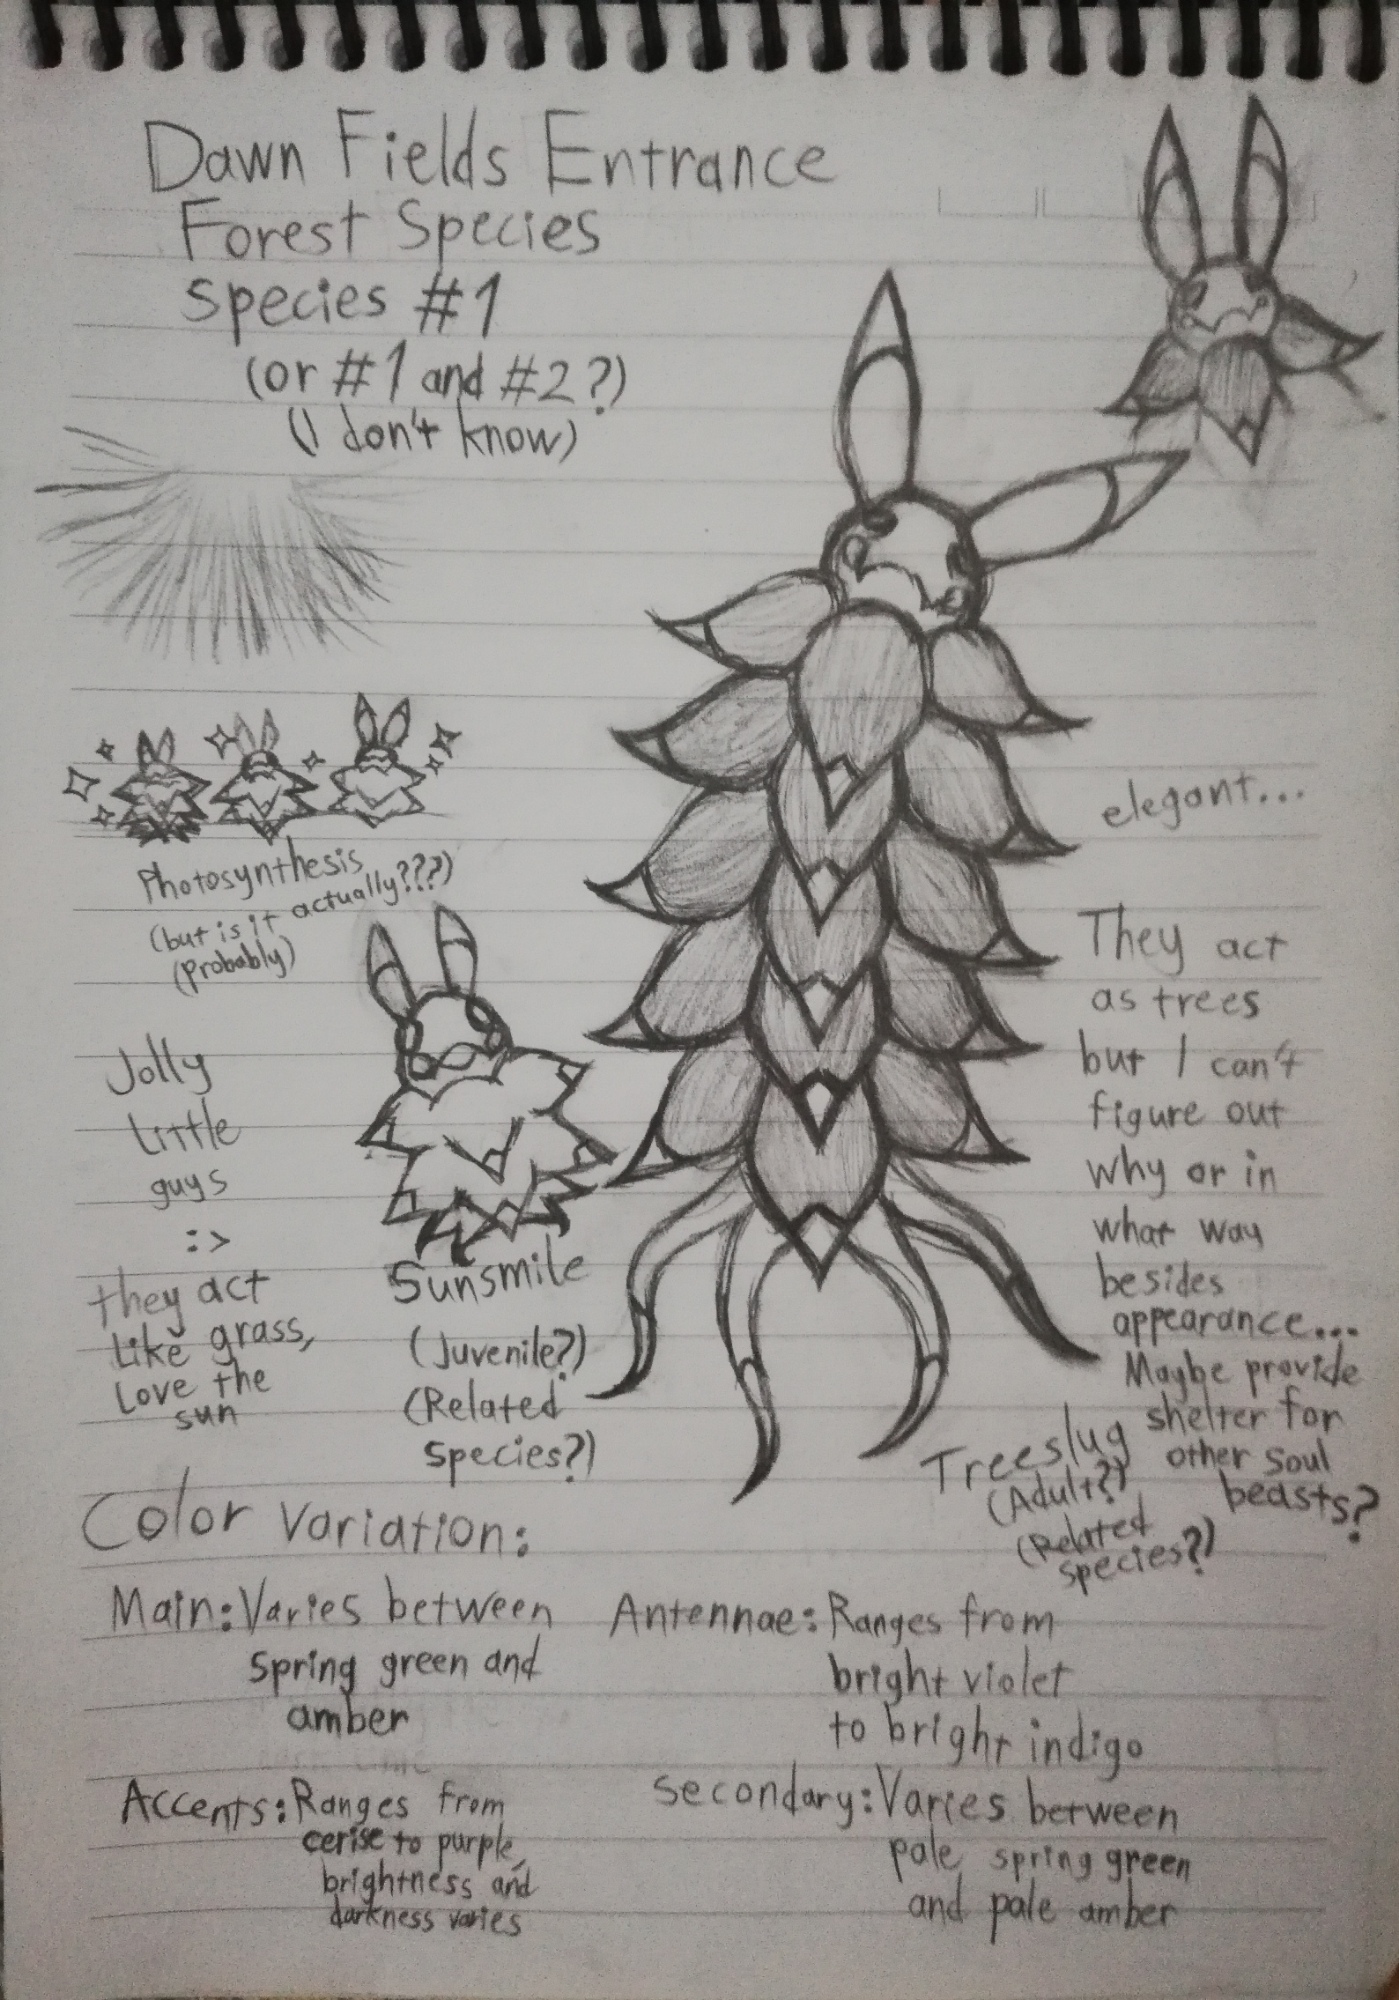 Dawn Fields Entrance
Forest Species
Species #1
(or #1 and #2?)
(I don't know)
Photosynthesis
(but is it actually???)
(Probably)
Jolly
Little
guys
:>
They act
like grass,
Love the
sun
Sunsmile
(Juvenile?)
(Related
Species?)
elegant...
They act
as trees
but I can't
figure out
why or in
what way
besides
appearance...
Maybe provide
shelter for
other soul
beasts?
Treeslug
(Adult?)
(Related
species?)
Color Variation:
Main: Varies between
spring green and
amber
Antennae: Ranges from
bright violet
to bright indigo
Accents: Ranges from
cerise to purple,
brightness and
darkness varies
Secondary: Varies between
pale spring green
and pale amber